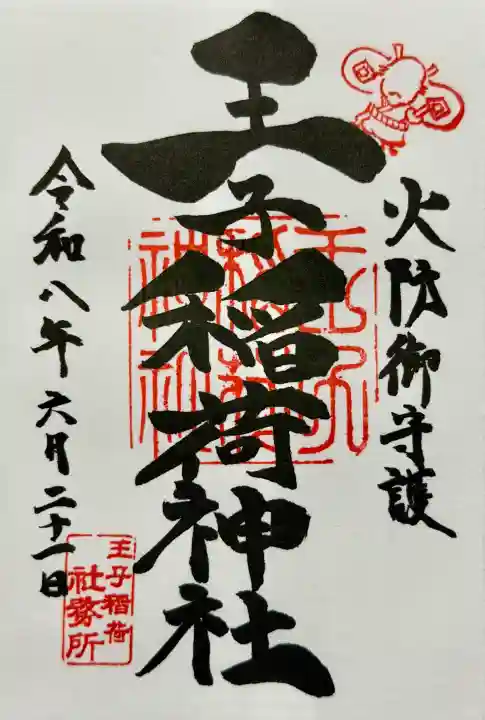 火防御守護
王子稲荷神社
王子稲荷神社
令和八年六月二十一日
王子稲荷
社務所